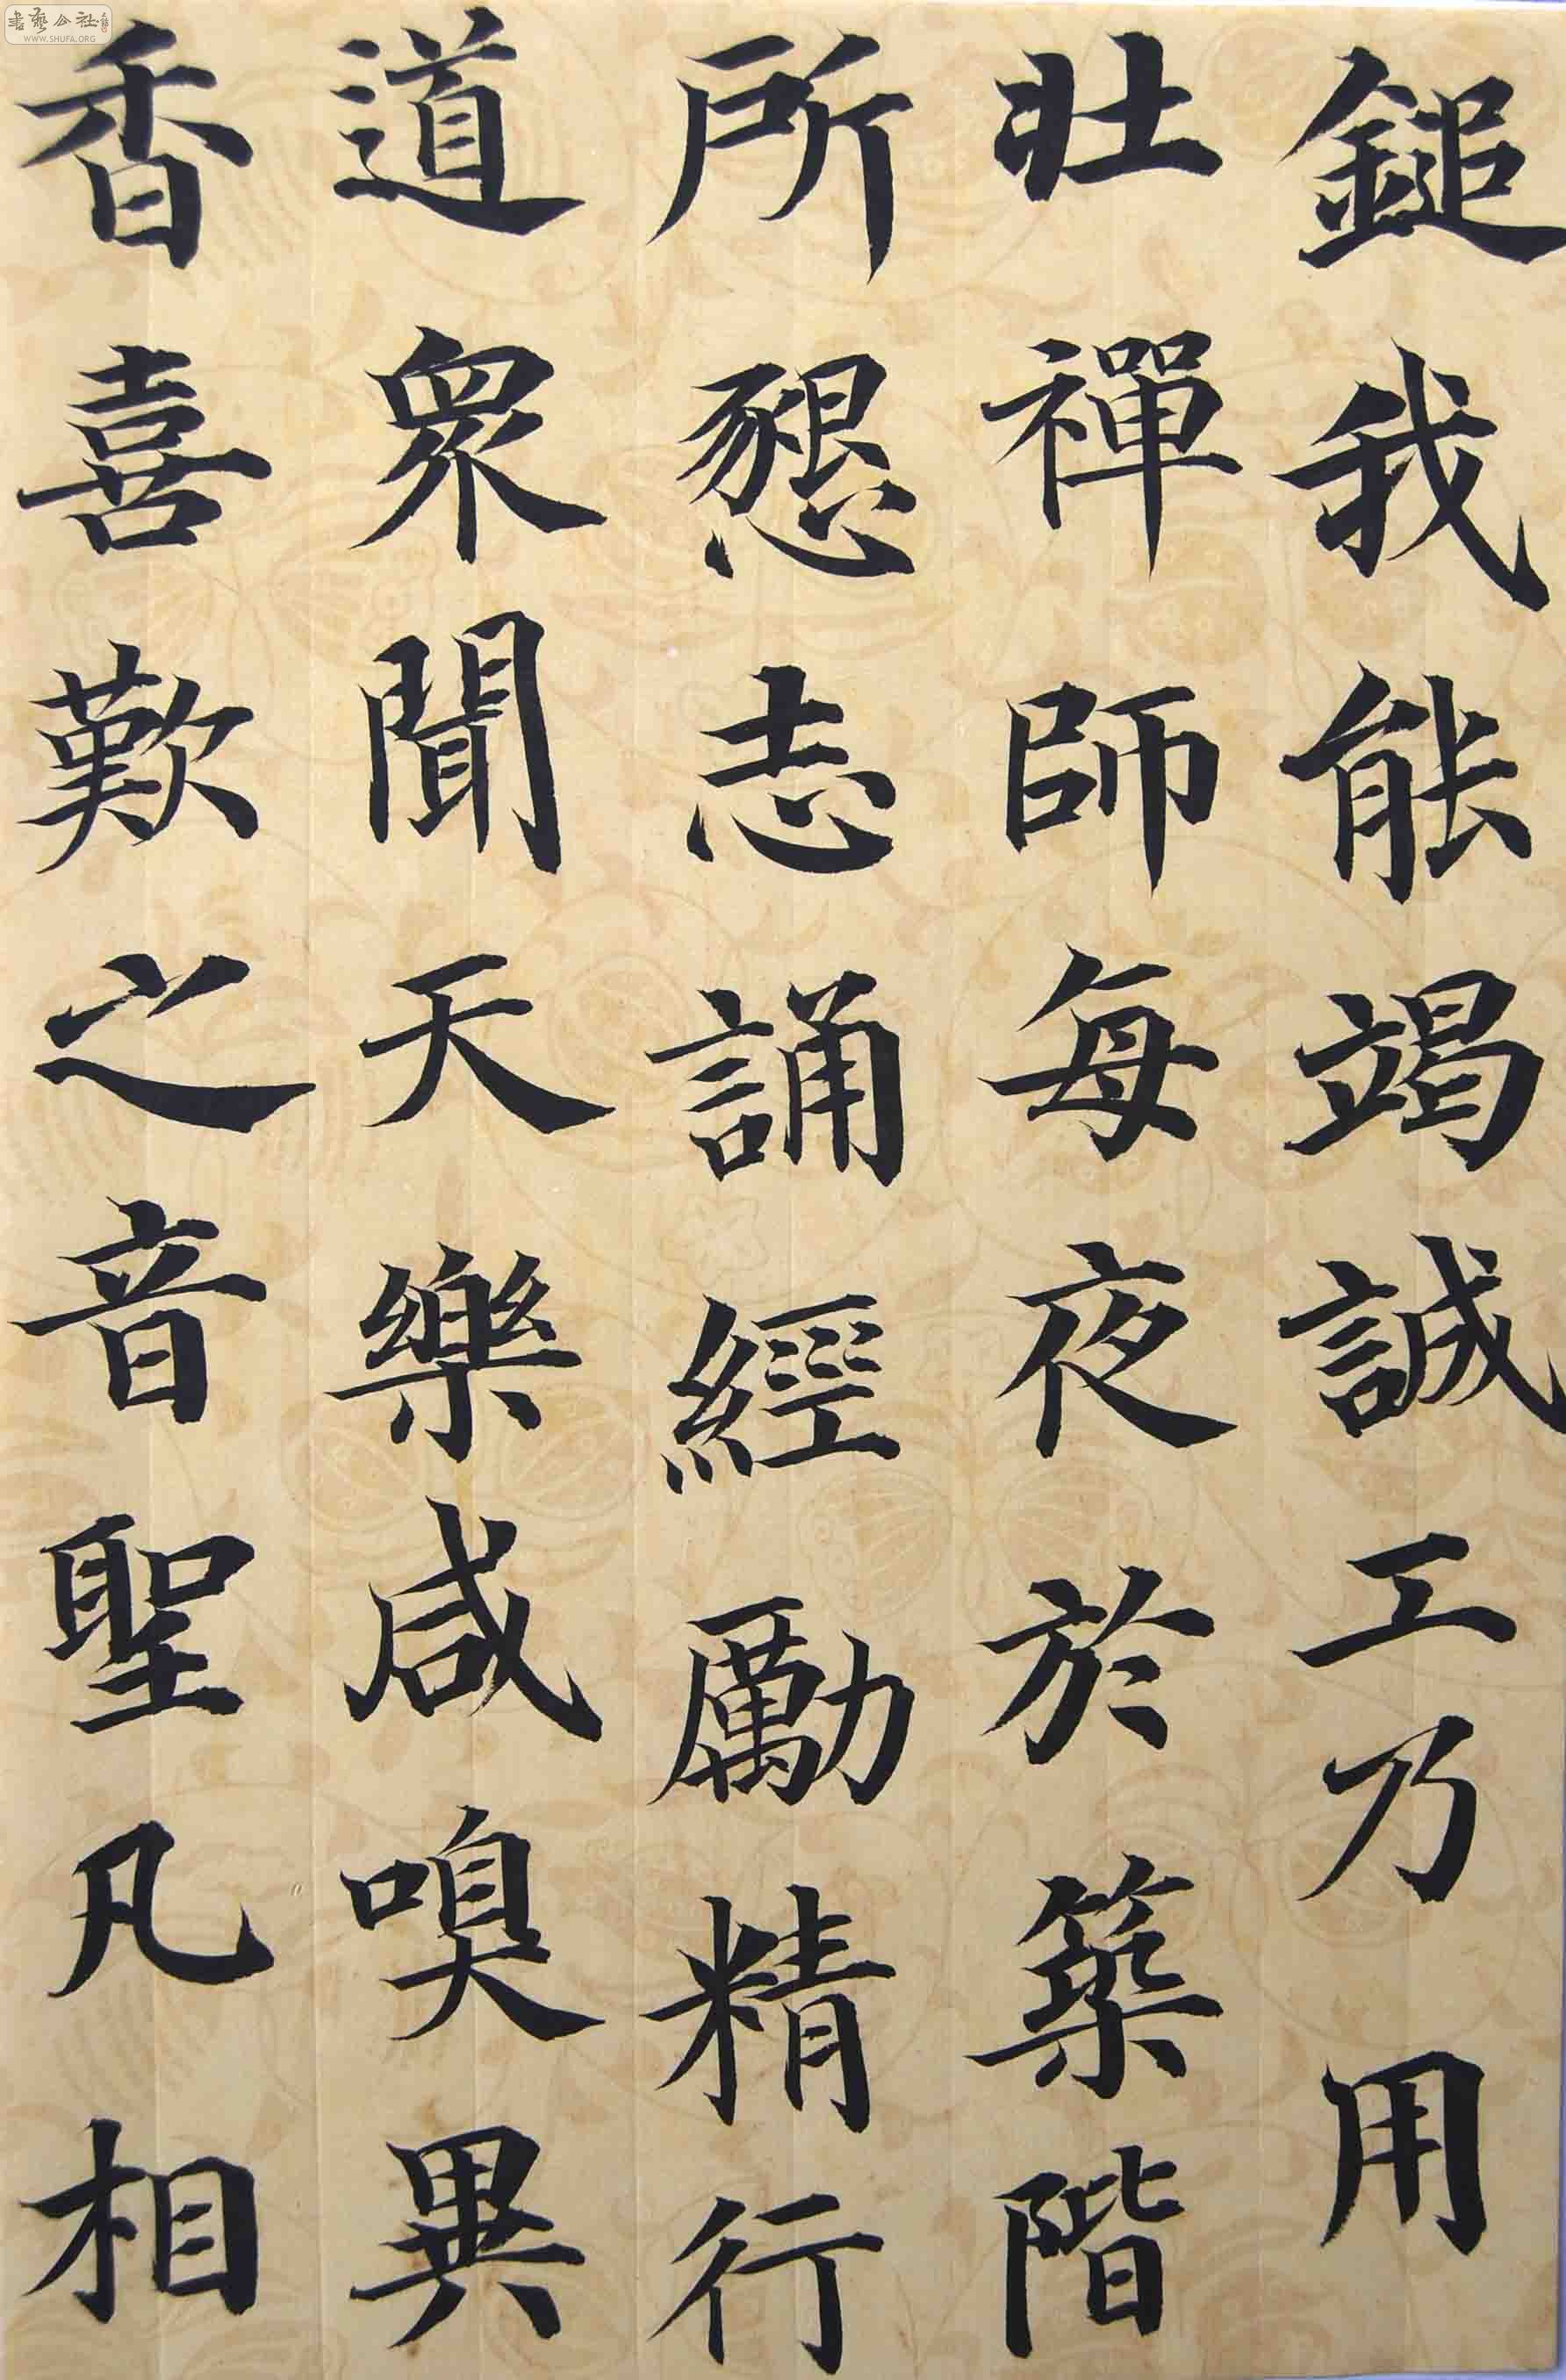 鎚我能竭誠工乃用
壯禪師每夜於築階
所懇志誦經勵精行
道眾聞天樂咸嗅異
香喜歎之音聖凡相
書藝公社
WWW.SHUFA.ORG